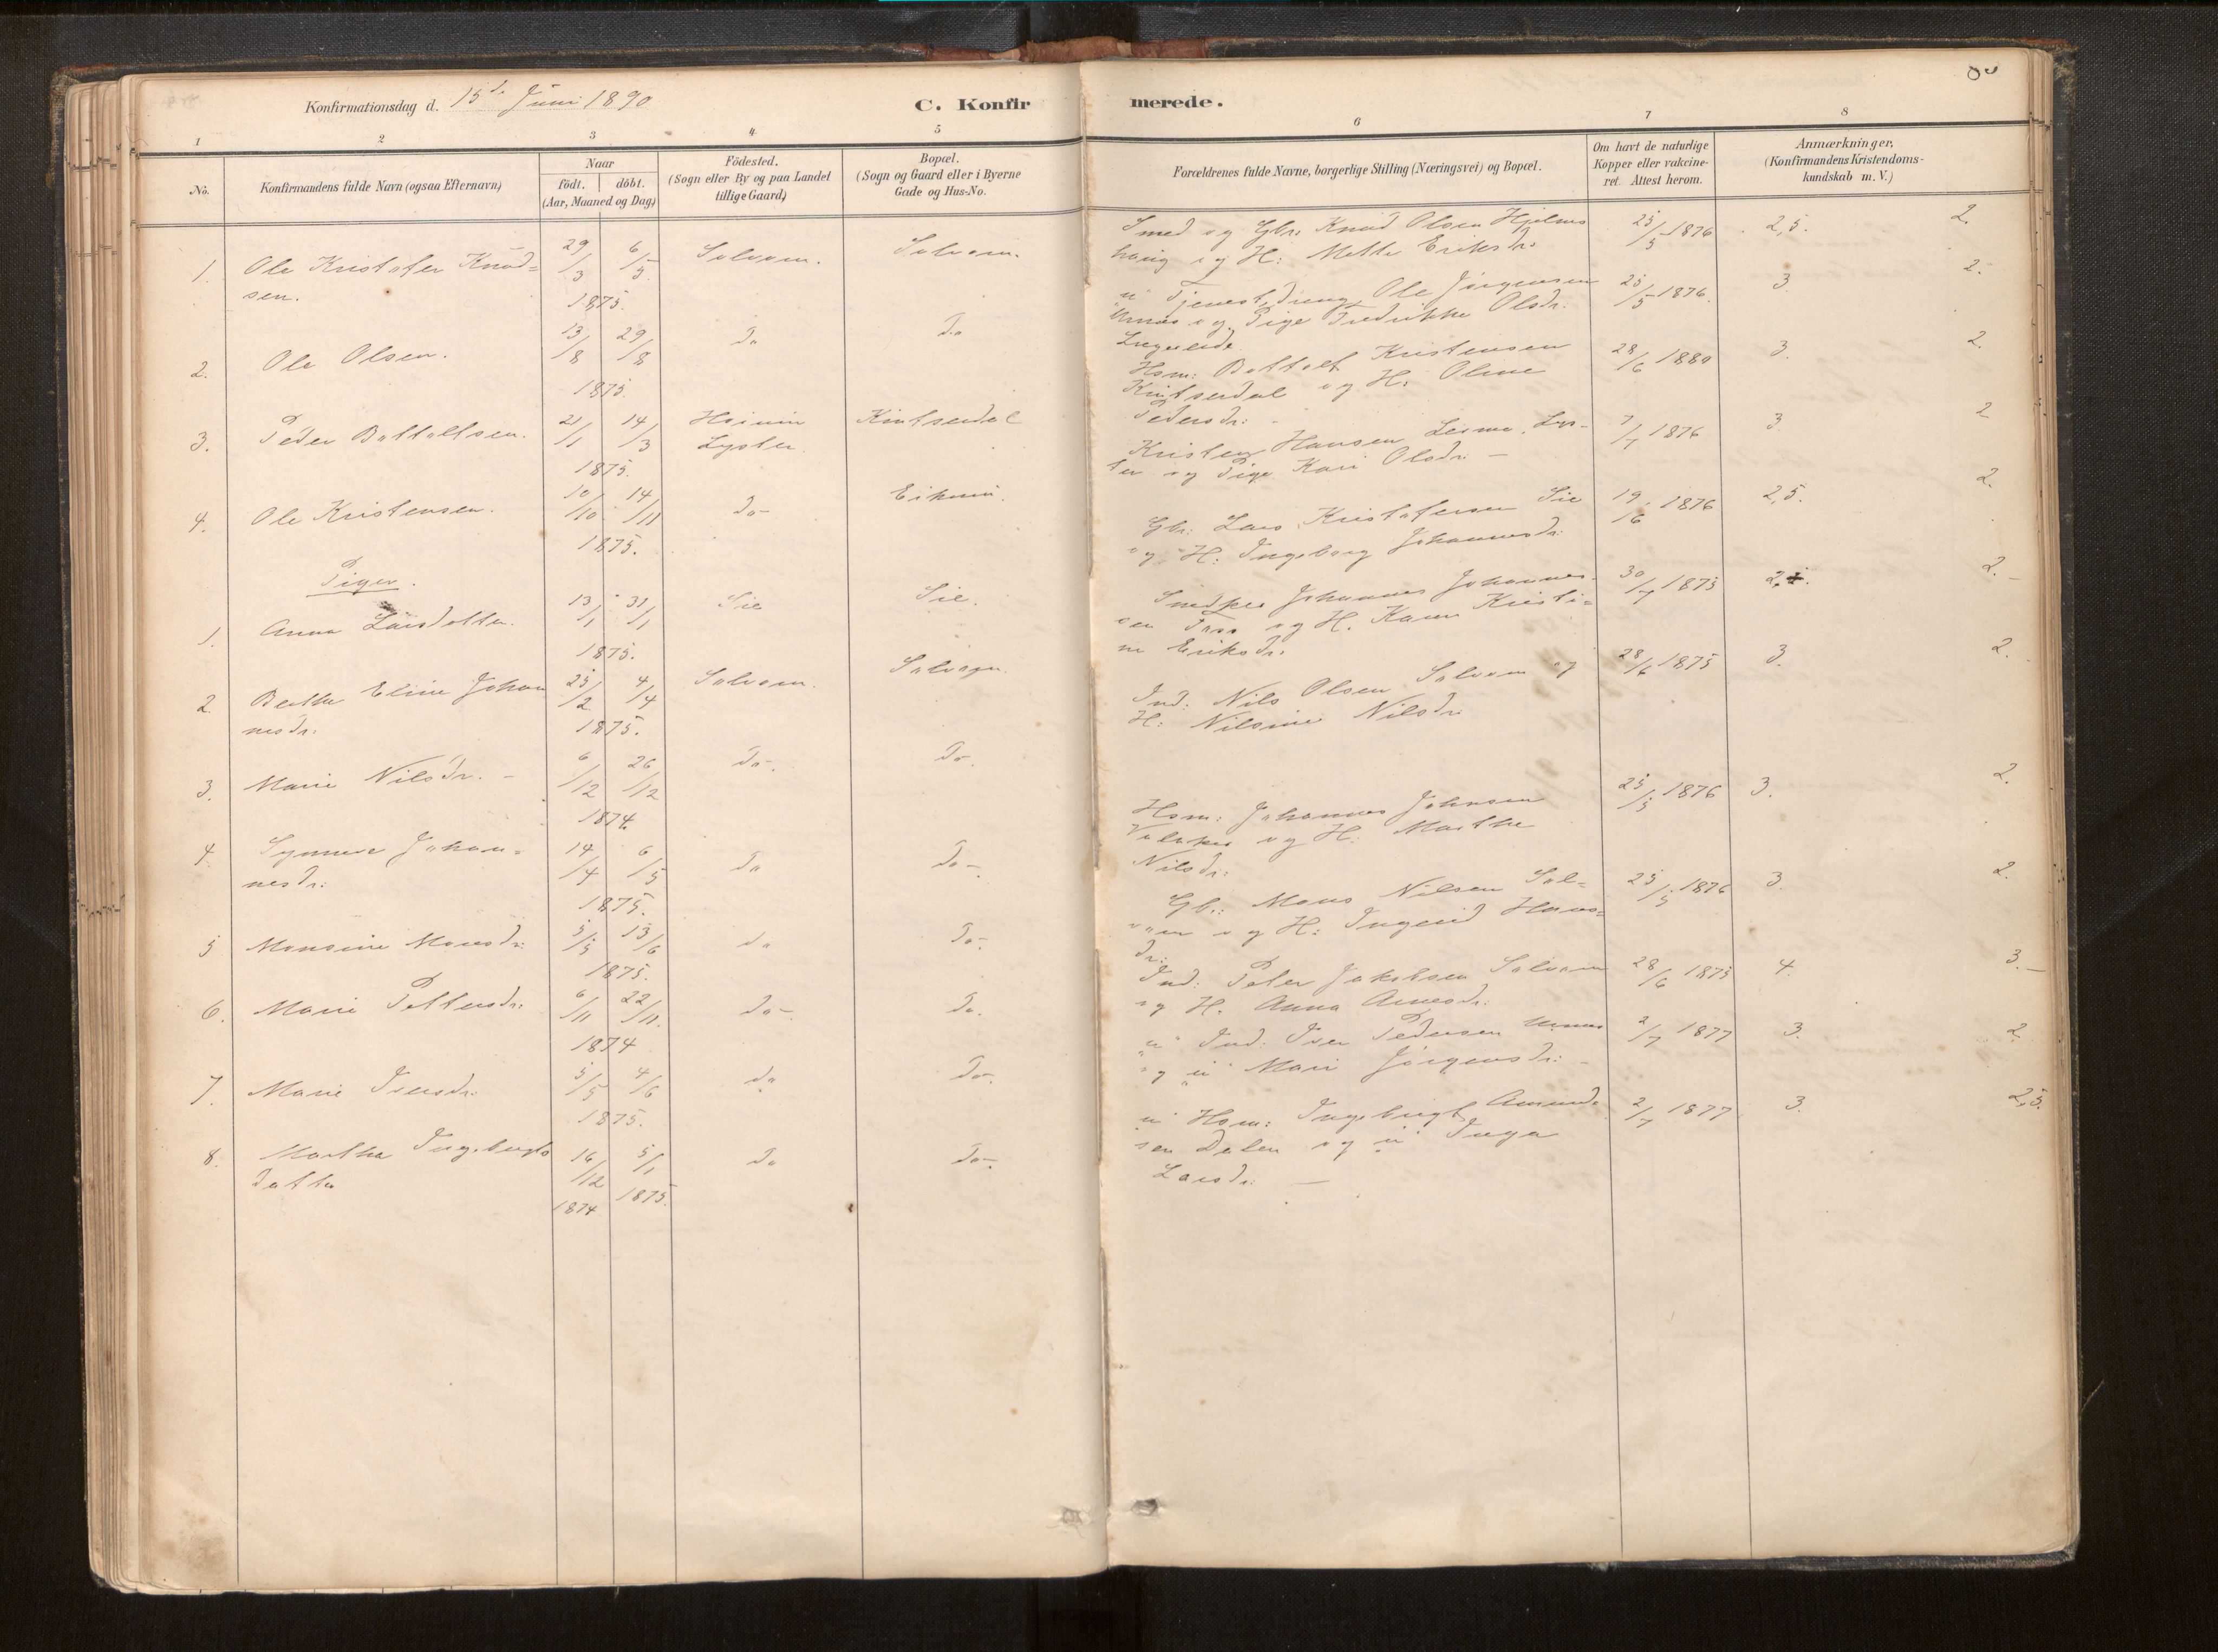 Konfirmationsdag d. 15de Juni 1890
C. Konfirmerede.
1 2 3 4 5 6 7 8
No.
Konfirmandens fulde Navn (ogsaa Efternavn)
Naar
födt. döbt.
(Aar, Maaned og Dag)
Födested.
(Sogn eller By og paa Landet
tillige Gaard)
Bopæl.
(Sogn og Gaard eller i Byerne
Gade og Hus-No.
Forældrenes fulde Navne, borgerlige Stilling (Næringsvei) og Bopæl.
Om havt de naturlige
Kopper eller vakcine-
ret. Attest herom.
Anmærkninger.
(Konfirmandens Kristendoms-
kundskab m. V.)
1. Ole Kristofer Knud=
sen.
29/3 6/5
1875.
Solvorn. Solvorn.
Smed og Gbr. Knud Olsen Hjelms
haug og H: Mette Eriksdr:
25/5 1876 2,5. 2.
2. Ole Olsen.
13/8 29/8
1875.
Do Do
u Tjenestdreng Ole Jørgensen
Urnes og Pige Fredrikke Olsdr.
25/5 1876. 3 2.
3. Peder Bottolfsen.
21/1 14/3
1875.
Lyster. Kintserdal
Hsm: Bottolf Kristensen
Kintserdal og H: Oline
Pedersdr:
28/6 1880 3. 2.
4. Ole Kristensen.
10/10 14/11
1875.
Do-
Kristen Hansen Lys-
ter og Pige Kari Olsdr. -
7/7 1876 3. 2
Piger.
1. Anna Larsdotter.
13/1 31/1
1875.
Sie Sie.
Gbr. Lars Kristofersen Sie
og H: Ingeborg Johannesdr.
19/6 1876 2,5. 2.
2 Berthe Eline Johan
nesdr.
25/2 4/4
1875.
Solvorn. Solvorn.
Snedker Johannes Johannes-
sen og H. Karen Kristi=
ne Eriksdr:
30/7 1875 2. 2.
3. Marie Nilsdr. -
6/12 26/12
1874.
Do-. Do.
Ind: Nils Olsen Solvorn og
H: Nilsine Nilsdr
28/6 1875 3. 2.
4. Synneve Johan=
nesdr:
14/4 6/5
1875.
Do Do-.
Hsm: Johannes Johnsen
og H: Marthe
Nilsdr:
25/5 1876 3. 2.
5 Monsine Monsdr:
5/5 13/6
1875.
Do Do-.
Gbr: Mons Nilsen Sol=
vorn og H: Ingeid Hans=
dr:
25/5 1876 3. 2.
6. Marie Pettersdr:
6/11 22/11.
1874
Do-. Do.
Ind: Peter Jakobsen Solvorn
og H. Anna Arnesdr:
28/6 1875 4. 3.
7. Marie Iversdr:
5/5 4/6
1875.
Do Do-.
u Ind: Iver Pedersen Urnes
og u Mari Jørgensdr:
2/7 1877 3. 2.
8. Martha Ingebrigts
datter
16/12 5/1
1874 1875.
Do Do-.
u Hsm: Ingebrigt Amund=
sen Dalen og u Inga
Larsdr: -
2/7 1877. 3. 2,5.